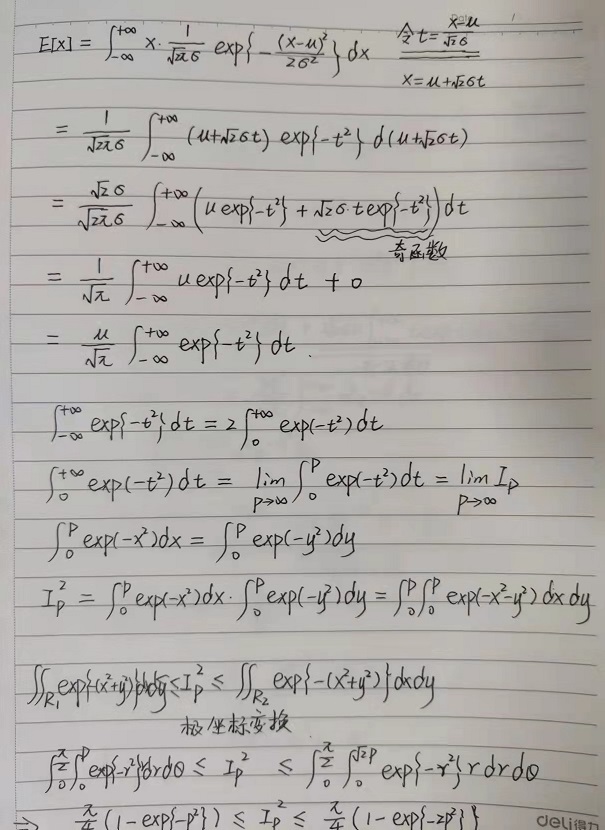 E[x] = ∫_{-∞}^{+∞} x· 1/(√(2π)σ) exp{-(x-u)²/(2σ²)} dx 令 t = (x-u)/(√2σ)
x = u+√2σt
= 1/(√(2π)σ) ∫_{-∞}^{+∞} (u+√2σt) exp{-t²} d(u+√2σt)
= √2σ/(√(2π)σ) ∫_{-∞}^{+∞} (u exp{-t²} + √2σ·t exp{-t²}) dt
奇函数
= 1/√π ∫_{-∞}^{+∞} u exp{-t²} dt + 0
= u/√π ∫_{-∞}^{+∞} exp{-t²} dt.
∫_{-∞}^{+∞} exp{-t²} dt = 2∫_0^{+∞} exp(-t²) dt
∫_0^{+∞} exp(-t²) dt = lim_{p→∞} ∫_0^p exp(-t²) dt = lim_{p→∞} I_p
∫_0^p exp(-x²) dx = ∫_0^p exp(-y²) dy
I_p² = ∫_0^p exp(-x²) dx · ∫_0^p exp(-y²) dy = ∫_0^p ∫_0^p exp(-x²-y²) dx dy
∬_{R₁} exp{-(x²+y²)} dxdy ≤ I_p² ≤ ∬_{R₂} exp{-(x²+y²)} dxdy
极坐标变换
∫_0^{π/2} ∫_0^p exp{-r²} r dr dθ ≤ I_p² ≤ ∫_0^{π/2} ∫_0^{√2p} exp{-r²} r dr dθ
⇒ π/4 (1-exp{-p²}) ≤ I_p² ≤ π/4 (1-exp{-2p²})
deli得力